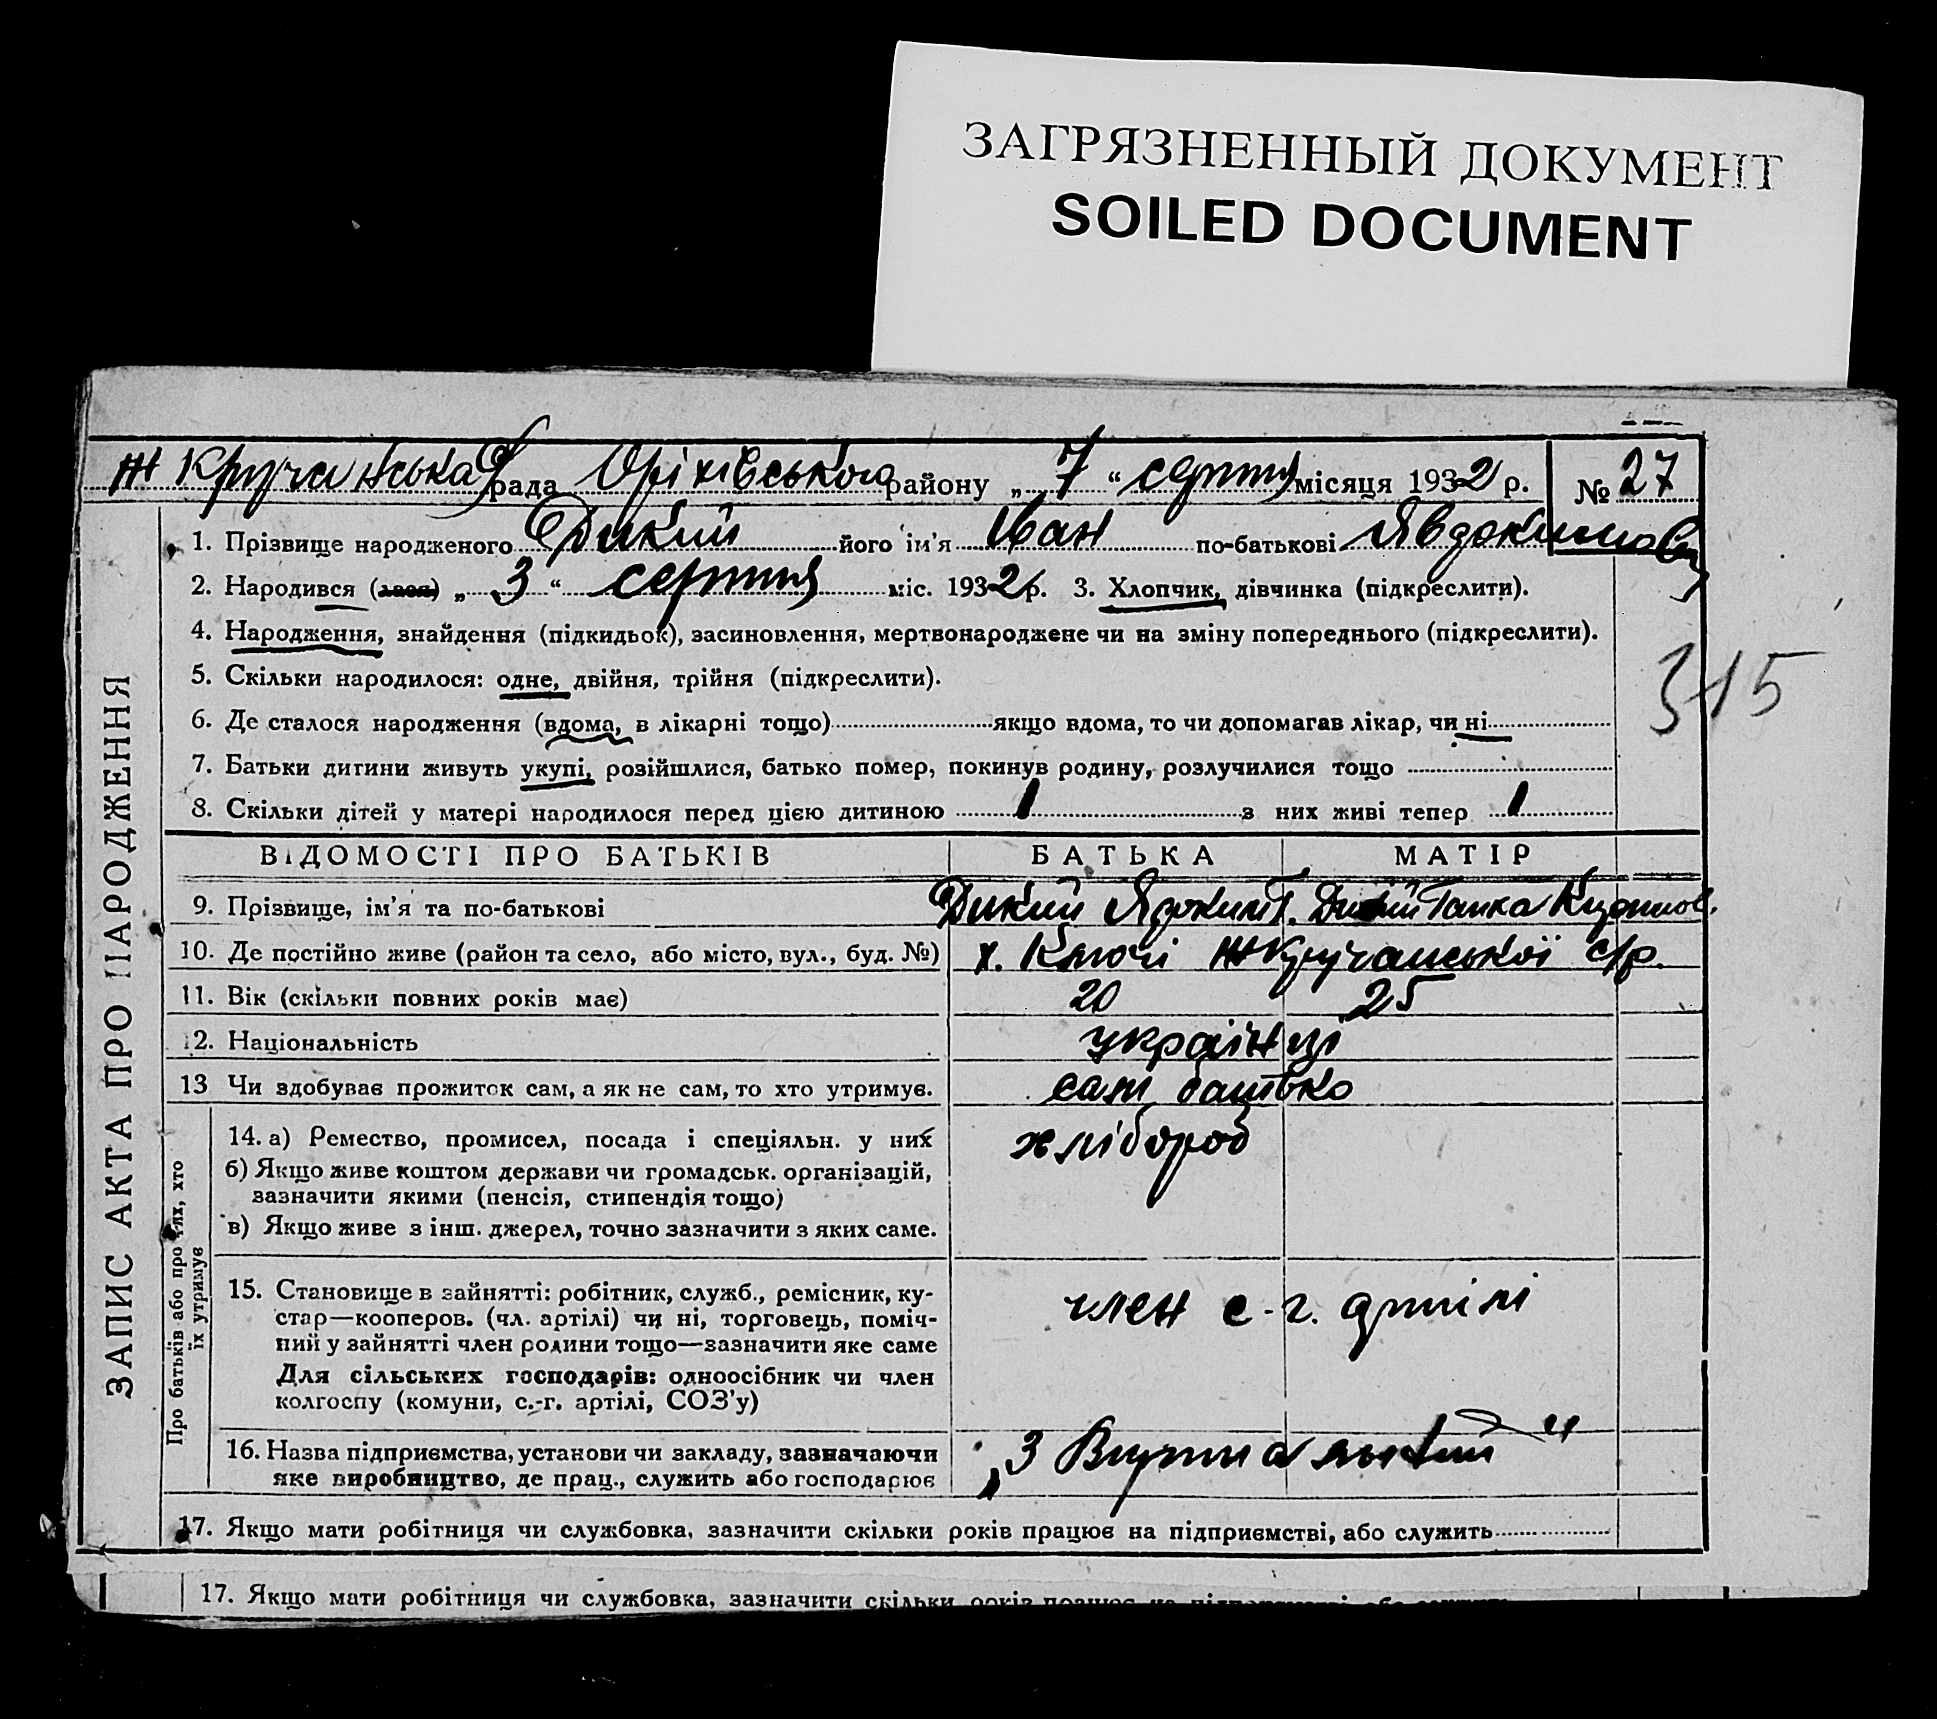 ЗАГРЯЗНЕННЫЙ ДОКУМЕНТ
SOILED DOCUMENT
рада Оріхівського району „ 7 “ серпня місяця 1932 р. № 27
1. Прізвище народженого Дикий його ім'я Іван по-батькові Явдокимов
2. Народився (лася) „ 3 “ серпня міс. 1932 р. 3. Хлопчик, дівчинка (підкреслити).
4. Народження, знайдення (підкидьок), засиновлення, мертвонароджене чи на зміну попереднього (підкреслити).
315
5. Скільки народилося: одне, двійня, трійня (підкреслити).
6. Де сталося народження (вдома, в лікарні тощо) якщо вдома, то чи допомагав лікар, чи ні
7. Батьки дитини живуть укупі, розійшлися, батько помер, покинув родину, розлучилися тощо
8. Скільки дітей у матері народилося перед цією дитиною 1 з них живі тепер 1
ЗАПИС АКТА ПРО НАРОДЖЕННЯ
ВІДОМОСТІ ПРО БАТЬКІВ БАТЬКА МАТІР
9. Прізвище, ім'я та по-батькові Дикий
10. Де постійно живе (район та село, або місто, вул., буд. №) х. Ключі с/р.
11. Вік (скільки повних років має) 20 25
12. Національність українці
13 Чи здобуває прожиток сам, а як не сам, то хто утримує. сам батько
Про батьків або про тих, хто
їх утримує
14. а) Ремество, промисел, посада і спеціяльн. у них хлібороб
б) Якщо живе коштом держави чи громадськ. організацій,
зазначити якими (пенсія, стипендія тощо)
в) Якщо живе з інш. джерел, точно зазначити з яких саме.
15. Становище в зайнятті: робітник, служб., ремісник, ку-
стар—кооперов. (чл. артілі) чи ні, торговець, поміч-
ний у зайнятті член родини тощо—зазначити яке саме
член с-г. артілі
Для сільських господарів: одноосібник чи член
колгоспу (комуни, с.-г. артілі, СОЗ'у)
16. Назва підприємства, установи чи закладу, зазначаючи
яке виробництво, де прац., служить або господарює
17. Якщо мати робітниця чи службовка, зазначити скільки років працює на підприємстві, або служить
17. Якщо мати робітниця чи службовка, зазначити скільки років